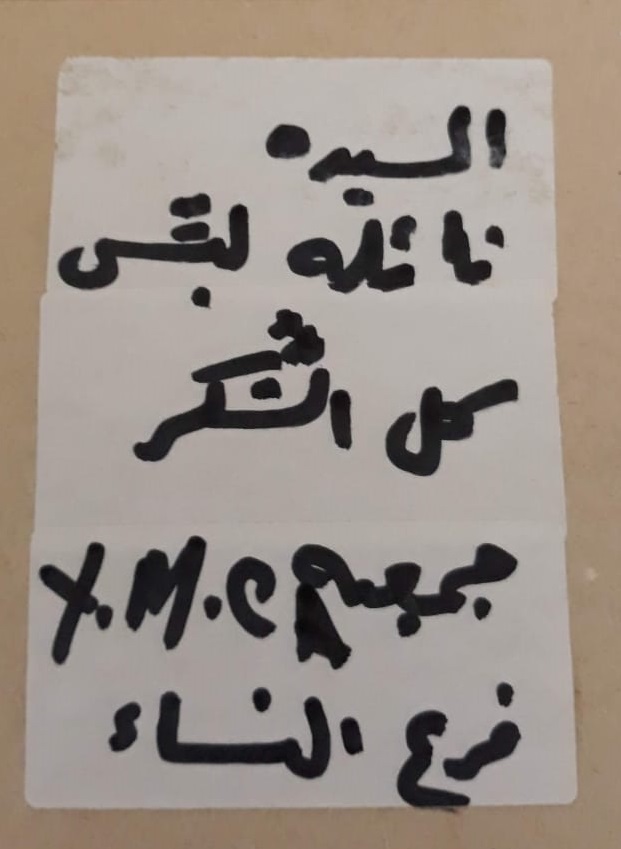 السيده
نائله لبّس
كل الشكر
جمعيه Y.M.C A
فرع النساء